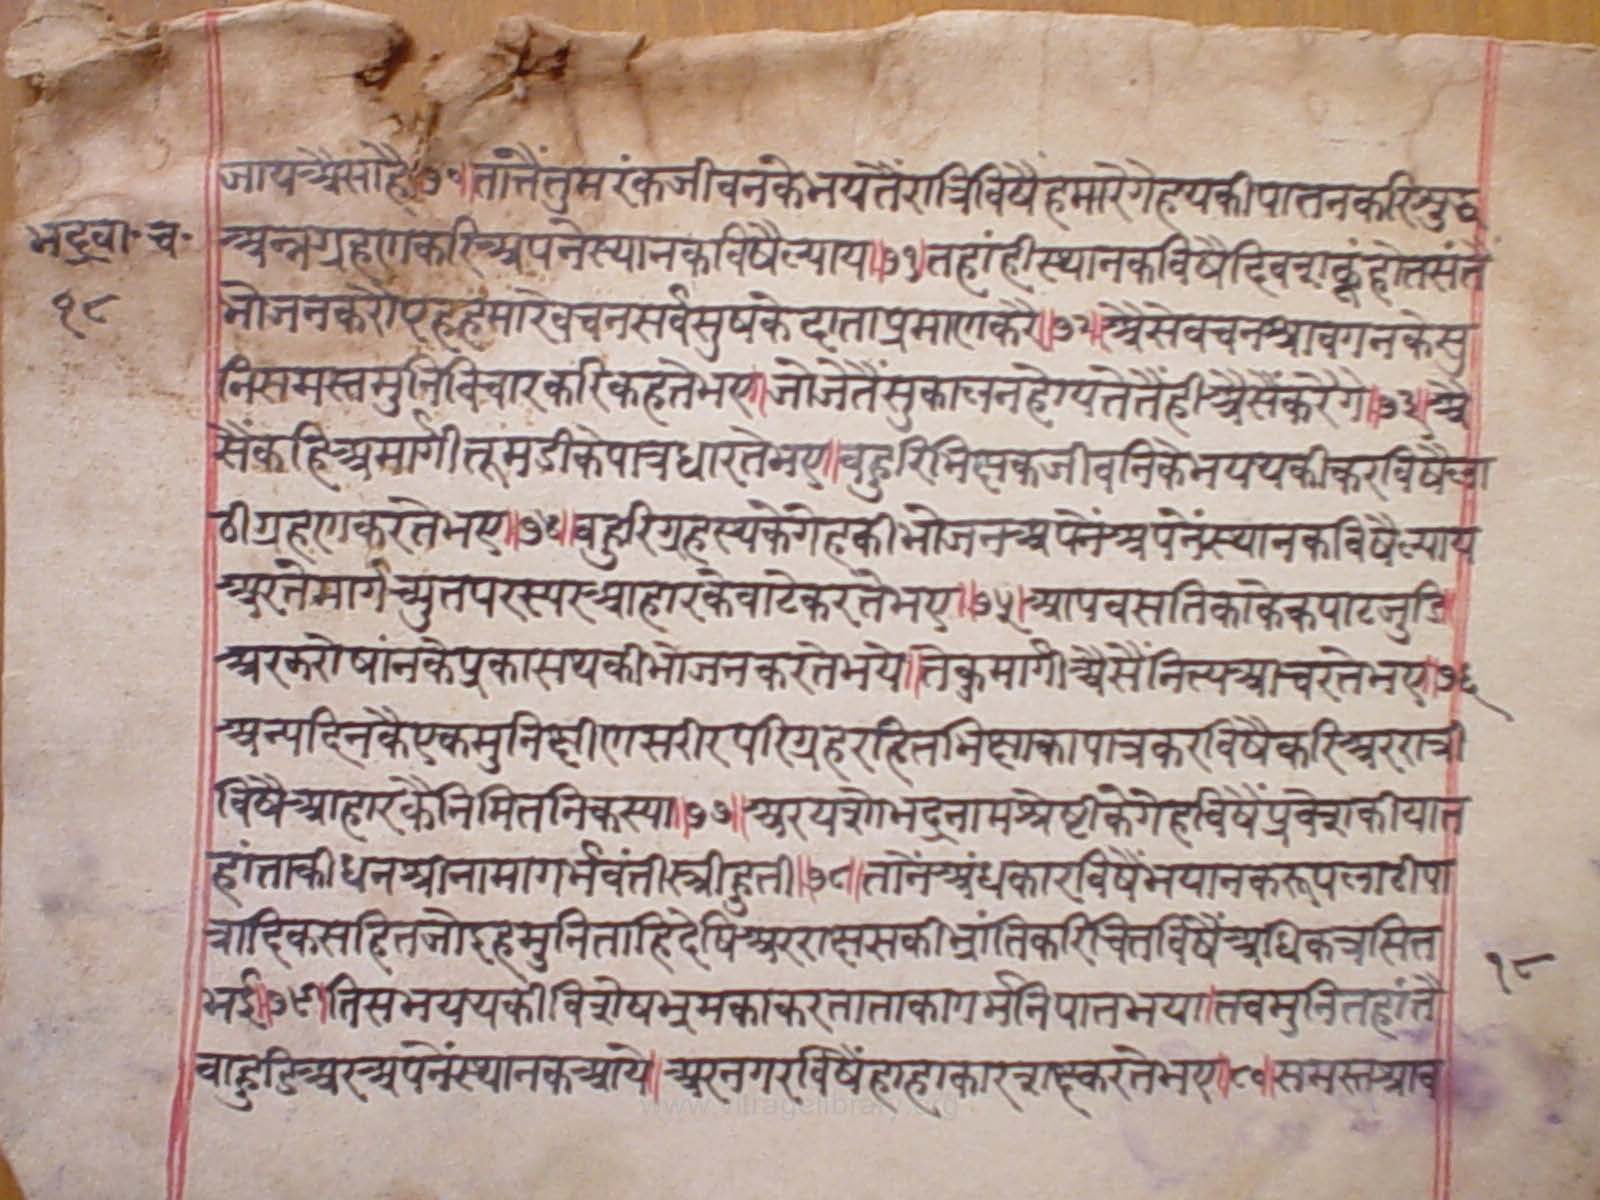 जायअैसाहै।७१।तांतैंतुमरंकजीवनकेभयतैंरात्रिविषैंहमारेगेहथकीपात्रनकरिशुद्ध
भद्रबा॰च॰
अन्नग्रहणकरिअपनेस्थानकविषैल्याय।७१।तहांहीस्थानकविषैदिवशकूंहोतसंतैं
१८
भोजनकरौएहहमारेवचनसर्वसुषकेदाताप्रमाणकरै।७२।अैसेवचनश्रावगनकेसु
निसमस्तमुनिविचारकरिकहतेभए।जोजेतैंसुकालनहोयतेतैंहीअैसैंकरेगे।७३।अै
सैंकहिअमार्गीतूमडीकेपात्रधारतेभए।बहुरिभिक्षकजीवनिकेभयथकीकरविषैंला
ठीग्रहणकरतेभए।७४।बहुरिग्रहस्थकेगेहकीभोजनअपनेंअपनेंस्थानकविषैल्याय
अरतेमार्गच्युतपरस्परआहारकेवाटेकरतेभए।७५।आपवसतिकाकेकपाटजुडि
अरझरोषांनकैप्रकासथकीभोजनकरतेभये।तेकुमार्गीअैसैंनित्यआचरतेभए।७६
अन्यदिनकैएकमुनिक्षीणसरीरपरिग्रहरहितभिक्षाकापात्रकरविषैकरिअररात्री
विषैआहारकैनिमितनिकस्या।७७।अरयशोभद्रनामश्रेष्टीकेगेहविषैंप्रवेशकीयात
हांताकीधनश्रीनामागर्भवंतीस्त्रीहुती।७८।तानैंअंधकारविषैंभयानकरूपलाठीपा
त्रादिकसहितजोइहमुनिताहिदेषिअरराक्षसकीभ्रांतिकरिचितविषैंअधिकत्रसित
१८
भई।७९।तिसभयथकीविशेषभ्रमकाकरताताकागर्भनिपातभया।तबमुनितहांतै
बाहुडिअरअपनेंस्थानकआये।अरनगरविषैंहाहाकारशब्दकरतेभए।८०।समस्तश्राव
www.vitragelibrary.org